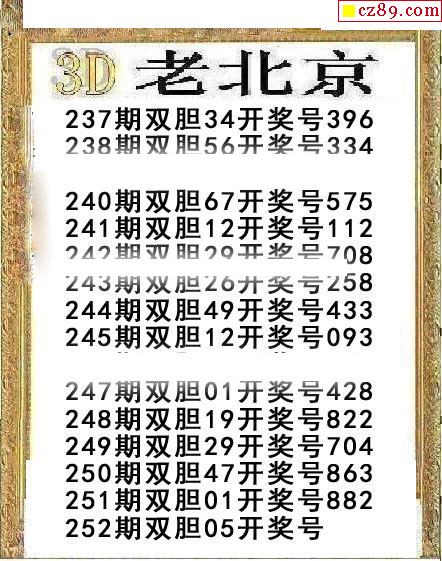 cz89.com
3D 老北京
237期双胆34开奖号396
238期双胆56开奖号334
240期双胆67开奖号575
241期双胆12开奖号112
242期双胆29开奖号708
243期双胆26开奖号258
244期双胆49开奖号433
245期双胆12开奖号093
247期双胆01开奖号428
248期双胆19开奖号822
249期双胆29开奖号704
250期双胆47开奖号863
251期双胆01开奖号882
252期双胆05开奖号